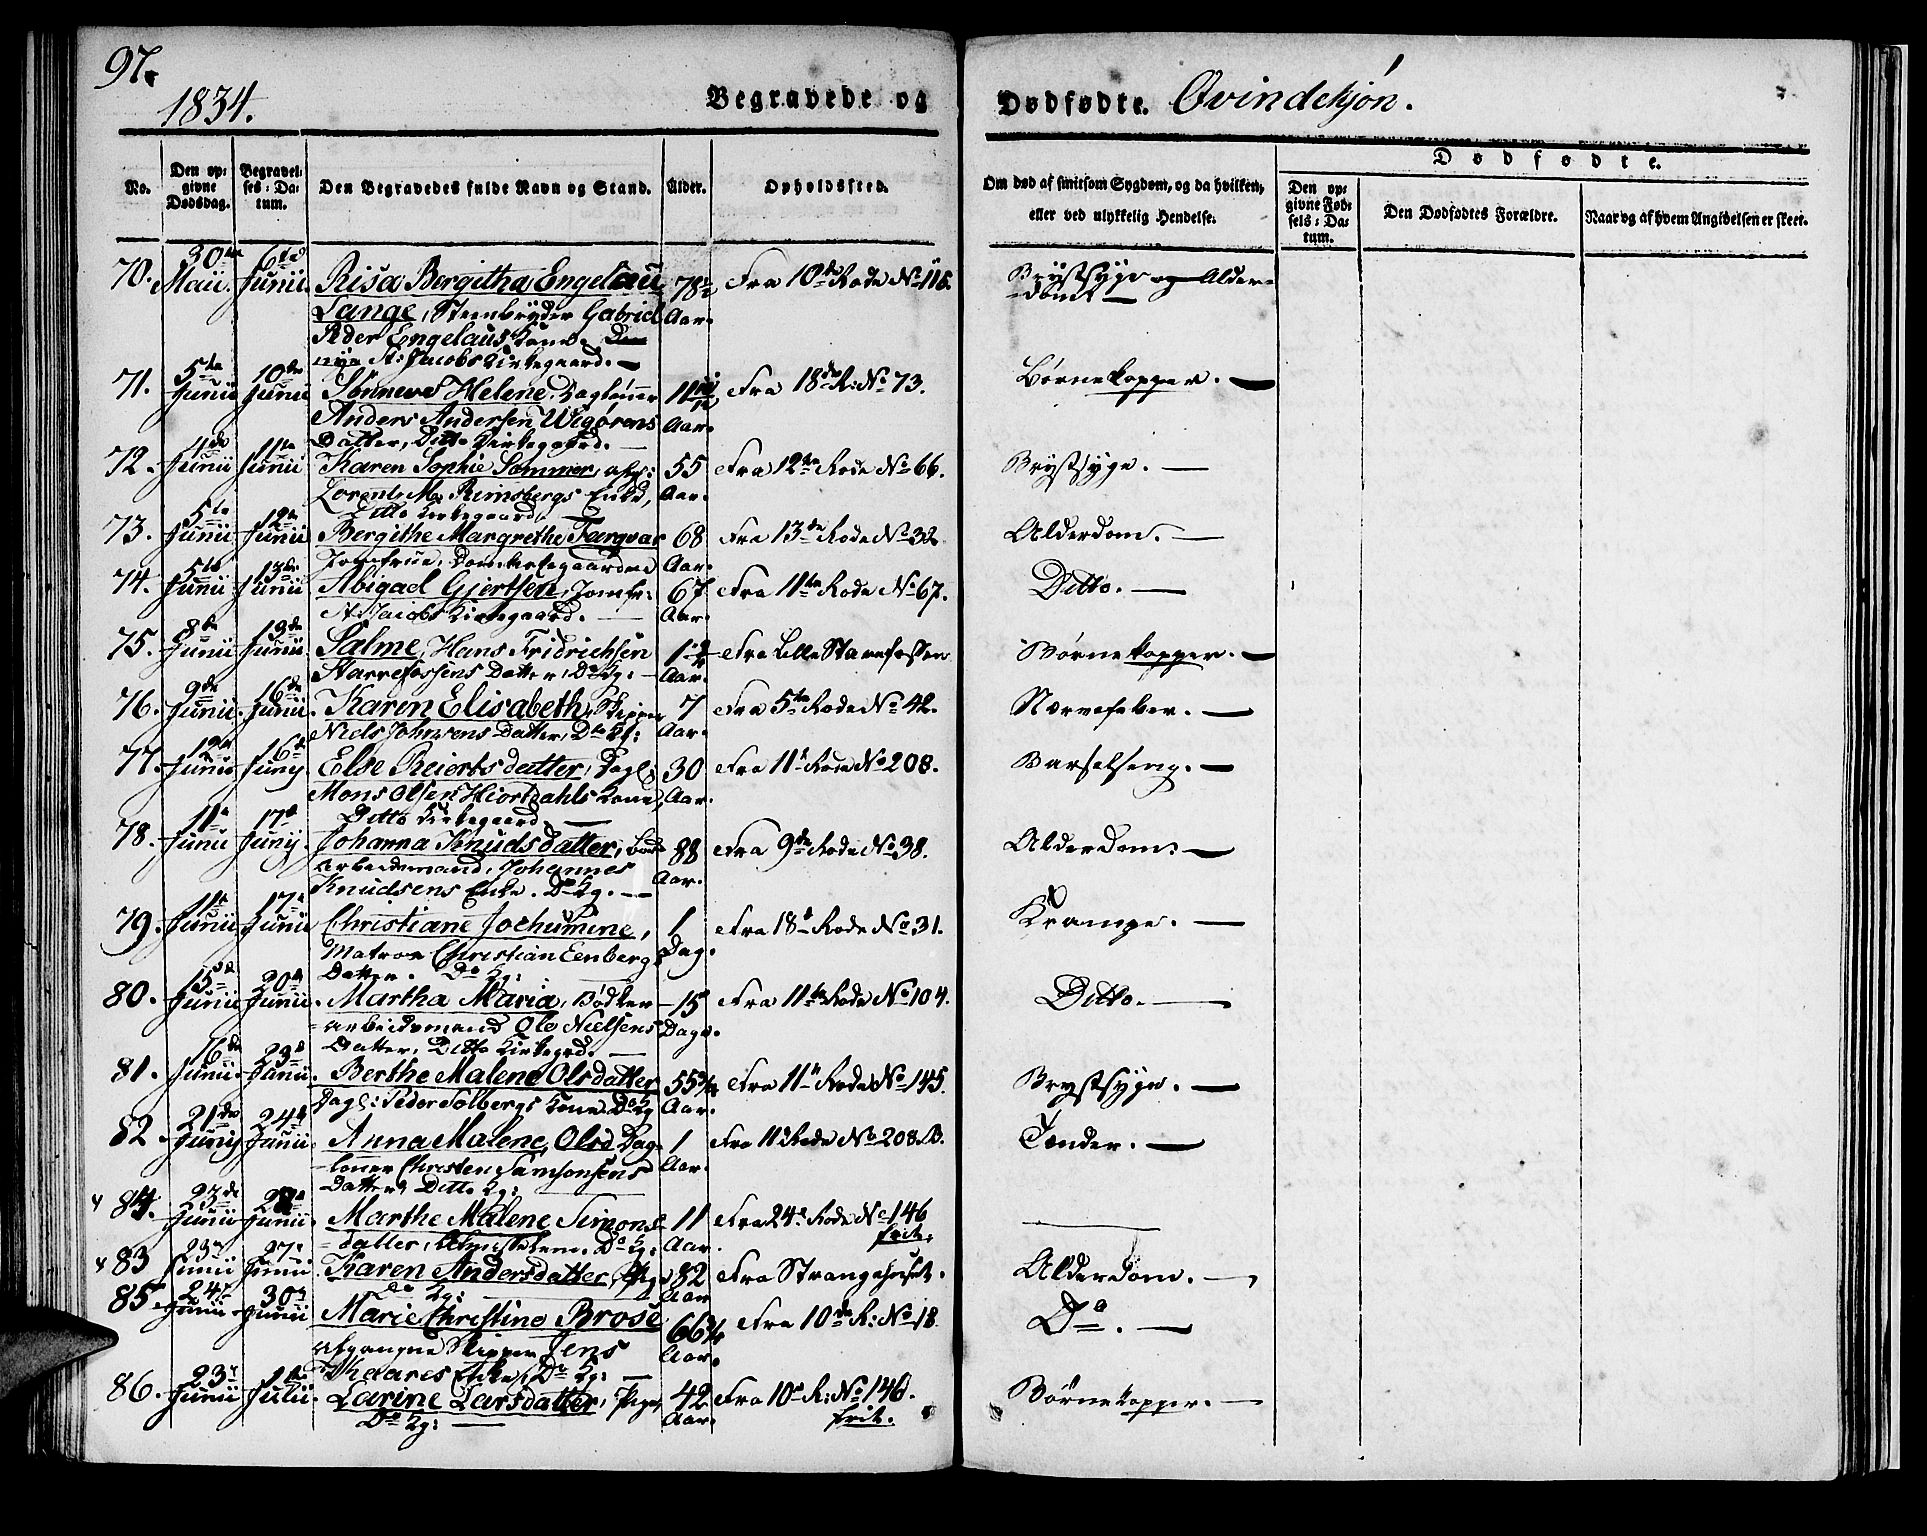 97.
1834.
Begravede og
Dødfødte. Qvindekjøn.
No.
Den op-
givne
Dødsdag.
Begravel-
ses-Da-
tum.
Den Begravedes fulde Navn og Stand.
Alder.
Opholdssted.
Om død af smitsom Sygdom, og da hvilken,
eller ved ulykkelig Hendelse.
Dødfødte.
Den op-
givne Fød-
sels-Da-
tum.
Den Dødfødtes Forældre.
Naar og af hvem Angivelsen er skeet.
70. 30te Maii. 6te Junii Risa Bergitha Engelau 78 Fra 10de Rode No 116. Brystsyge og Alder-
Lange, Steenbryder Gabriel Aar. dom
Peder Engelaus Kone. Den
nye St: Jacobs Kirkegaard.
71. 5te Junii 10de Junii Sønneve Helene, Dagløner 11 Fra 18de R: No 73. Børnekopper.
Anders Andersen Wigørens Aar.
Datter, Ditto Kirkegaard.
72. 4de Junii 11te Junii Karen Sophie Sommer, afg: 55 Fra 12te Rode No 66. Brystsyge.
Lorentz M. Rimsbergs Enke, Aar.
Ditto Kirkegaard.
73. 5te Junii 12te Junii Bergithe Margrethe Farqvar 68 Fra 13de Rode No 32. Alderdom.
Jomfrue, Domkirkegaarden Aar.
74. 5te Junii 13de Junii Abigael Gjertsen, Jomfr: 67 Fra 11te Rode No 67. Ditto.
St. Jacobs Kirkegaard. Aar.
75. 8de Junii 13de Junii Salme, Hans Fridrichsen 1 Fra Lille Starefossen Børnekopper.
Starrefossens Datter, Do Kg: Aar.
76. 9de Junii. 16de Junii. Karen Elisabeth, Skipper 7 Fra 5te Rode No 42. Nervefeber.
Niels Johnsens Datter, Do Kg: Aar.
77. 12te Junii 16de Junij Else Reiertsdatter, Dagl: 30 Fra 11te Rode No 208. Barselseng.
Mons Olsen Hiortdahls Kone, Aar.
Ditto Kirkegaard
78. 11te Junii 17de Junij. Johanna Knudsdatter, 88 Fra 9de Rode No 38. Alderdom.
Arbeidsmand, Johannes Aar.
Knudsens Enke. Do Kg.
79. 11te Junii 17de Junii Christiane Jochumine, 1 Fra 18de Rode No 31. Krampe.
Matros Christian Eenbergs Dag.
Datter. Do Kg:
80. 15de Junii 20de Junii. Martha Maria, Bødker 15 Fra 11te Rode No 104. Ditto.
arbeidsmand Ole Nielsens Dage.
Datter, Ditto Kirkegrd.
81. 16de Junii. 23de Junii. Berthe Malene Olsdatter 55 3/4 Fra 11te Rode No 145. Brystsyge.
Dagl: Peder Solbergs Kone Do Kg Aar.
82. 21de Junij 24de Junii Anna Malene, Olsd Dag- 1 Fra 11te Rode No 208.B. Tænder.
løner Christen Samsonsens Aar.
Datter, Ditto Kg:
84. 23de Junii 28de Junii. Marthe Malene Simons- 11 Fra 24de Rode No 146
datter, Do Kg: Aar. frit.
83 23de Junii 27de Junii. Karen Andersdatter, Pige 82 Fra Strangehuset. Alderdom.
Do Kg: Aar
85. 24de Junii. 30te Junii Marie Christine Brose 66 3/4 Fra 10de R: No 18. Do.
afgangne Skipper Jens Aar.
Thaares Enke, Do Kg:
86. 23de Junii 1te Julii. Larine Larsdatter, Pige, 42 Fra 10de R: No 146. Børnekopper.
Do Kg: Aar. frit.